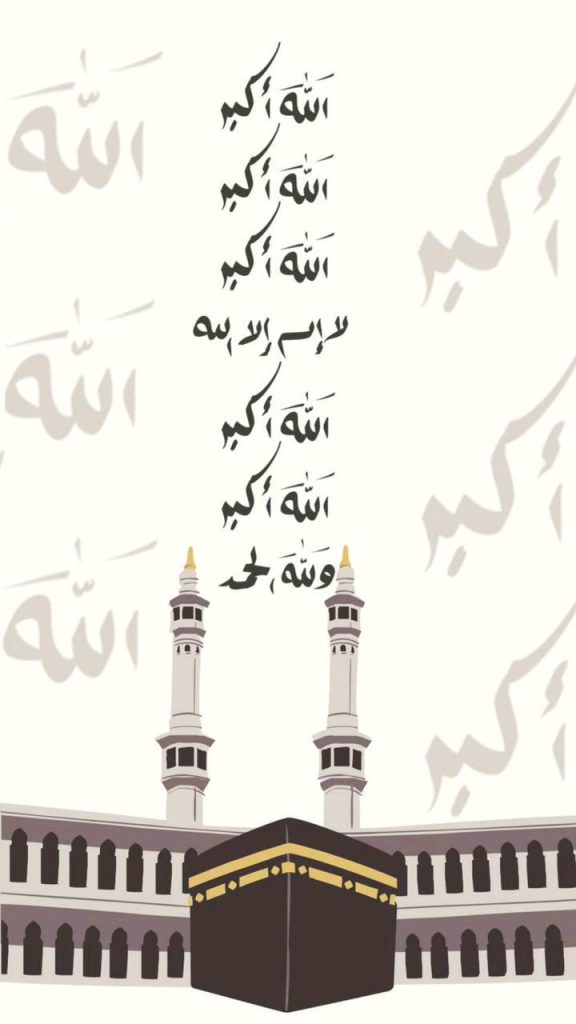 الله أكبر
الله أكبر
الله أكبر
لا إله إلا الله
الله أكبر
الله أكبر
ولله الحمد
الله
أكبر
الله
أكبر
الله
أكبر